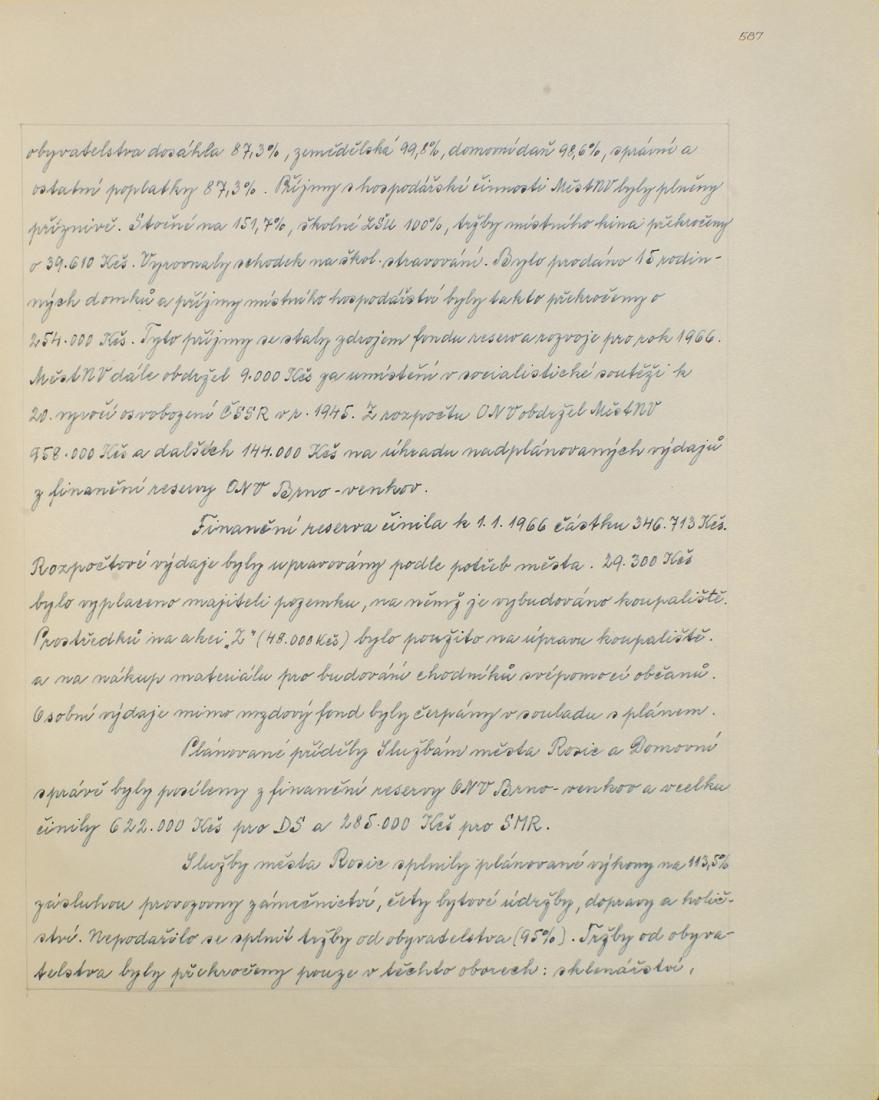 587
obyvatelstva dosáhla 87,3%, zemědělská 99,8%, domovní daň 98,6%, správní a
ostatní poplatky 87,3%. Příjmy z hospodářské činnosti MěstNV byly plněny
příznivě. Stočné na 151,7%, školné LŠU 100%, tržby místního kina překročeny
o 39.610 Kčs. Vyrovnaly schodek na škol. stravování. Bylo prodáno 15 rodin-
ných domků a příjmy místního hospodářství byly takto překročeny o
254.000 Kčs. Tyto příjmy se staly zdrojem fondu reserv a rozvoje pro rok 1966.
MěstNV dále obdržel 9.000 Kčs za umístění v socialistické soutěži k
20. vyročí osvobození ČSSR v r. 1945. Z rozpočtu ONV obdržel MěstNV
958.000 Kčs a dalších 144.000 Kčs na úhradu nadplánovaných výdajů
z finanční reservy ONV Brno-venkov.
Finanční reserva činila k 1.1.1966 částku 346.713 Kčs.
Rozpočtové výdaje byly upravovány podle potřeb města. 29.300 Kčs
bylo vyplaceno majiteli pozemku, na němž je vybudováno koupaliště.
Prostředků na akci „Z" (48.000 Kčs) bylo použito na úpravu koupaliště.
a na nákup materiálu pro budování chodníků svépomocí občanů.
Osobní výdaje mimo mzdový fond byly čerpány v souladu s plánem.
Plánované příděly Službám města Rosic a Domovní
správě byly posíleny z finanční reservy ONV Brno-venkov a vcelku
činily 622.000 Kčs pro DS a 285.000 Kčs pro SMR.
Služby města Rosic splnily plánované výkony na 113,5%
zásluhou provozovny zámečnictví, čety bytové údržby, dopravy a holič-
ství. Nepodařilo se splnit tržby od obyvatelstva (95%). Tržby od obyva-
telstva byly překročeny pouze v těchto oborech: sklenářství,